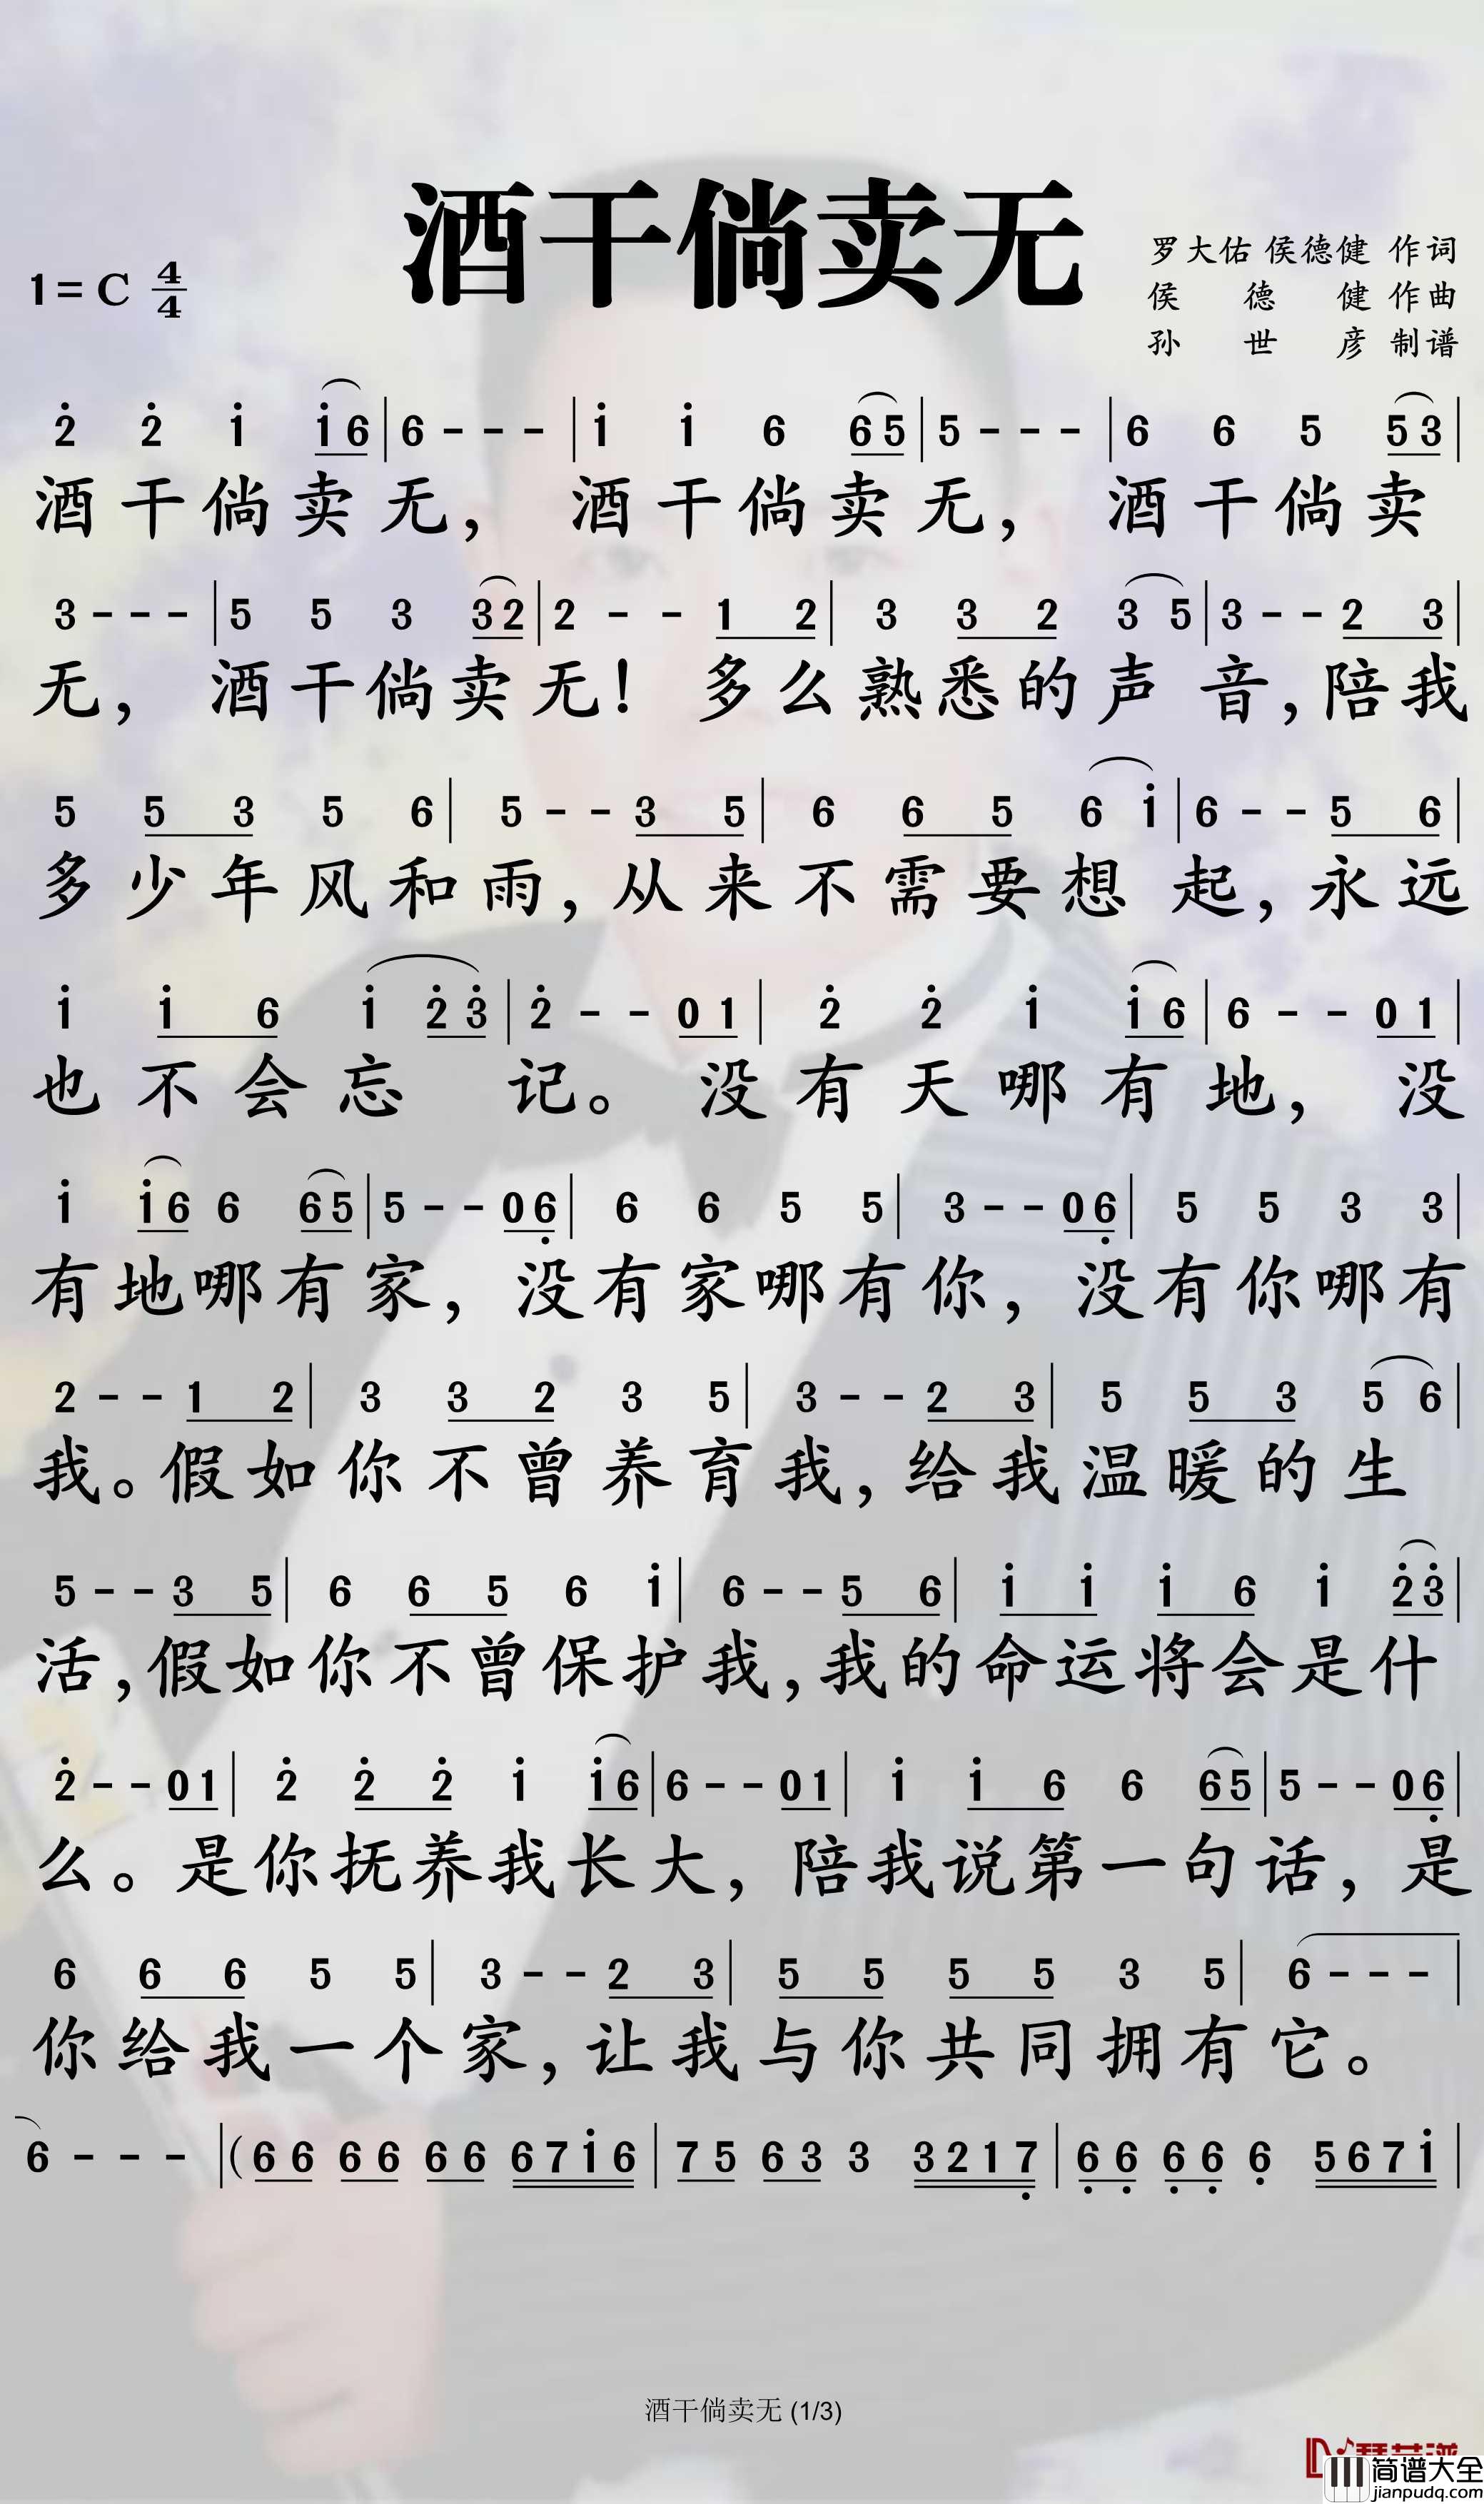 酒干倘卖无
1=C 4/4
罗大佑 侯德健 作词
侯 德 健 作曲
孙 世 彦 制谱
2̇ 2̇ 1̇ 1̇6 | 6 - - - | 1̇ 1̇ 6 65 | 5 - - - | 6 6 5 53 |
酒干倘卖无， 酒干倘卖无， 酒干倘卖
3 - - - | 5 5 3 32 | 2 - - 1 2 | 3 3 2 3 5 | 3 - - 2 3 |
无， 酒干倘卖无！ 多么熟悉的声音，陪我
5 5 3 5 6 | 5 - - 3 5 | 6 6 5 6 1̇ | 6 - - 5 6 |
多少年风和雨，从来不需要想起，永远
1̇ 1̇ 6 1̇ 2̇3̇ | 2̇ - - 01 | 2̇ 2̇ 1̇ 1̇6 | 6 - - 01 |
也不会忘 记。 没有天哪有地， 没
1̇ 1̇6 6 65 | 5 - - 06̣ | 6 6 5 5 | 3 - - 06̣ | 5 5 3 3 |
有地哪有家， 没有家哪有你， 没有你哪有
2 - - 1 2 | 3 3 2 3 5 | 3 - - 2 3 | 5 5 3 5 6 |
我。假如你不曾养育我，给我温暖的生
5 - - 3 5 | 6 6 5 6 1̇ | 6 - - 5 6 | 1̇ 1̇ 1̇ 6 1̇ 2̇3̇ |
活，假如你不曾保护我，我的命运将会是什
2̇ - - 01 | 2̇ 2̇ 2̇ 1̇ 1̇6 | 6 - - 01 | 1̇ 1̇ 6 6 65 | 5 - - 06̣ |
么。是你抚养我长大， 陪我说第一句话， 是
6 6 6 5 5 | 3 - - 2 3 | 5 5 5 5 3 5 | 6 - - - |
你给我一个家，让我与你共同拥有它。
6 - - - | (66 66 66 671̇6 | 75 63 3 3217̣ | 6̣6̣ 6̣6̣ 6̣ 5671̇ |
酒干倘卖无 (1/3)
简谱大全
jianpudq.com